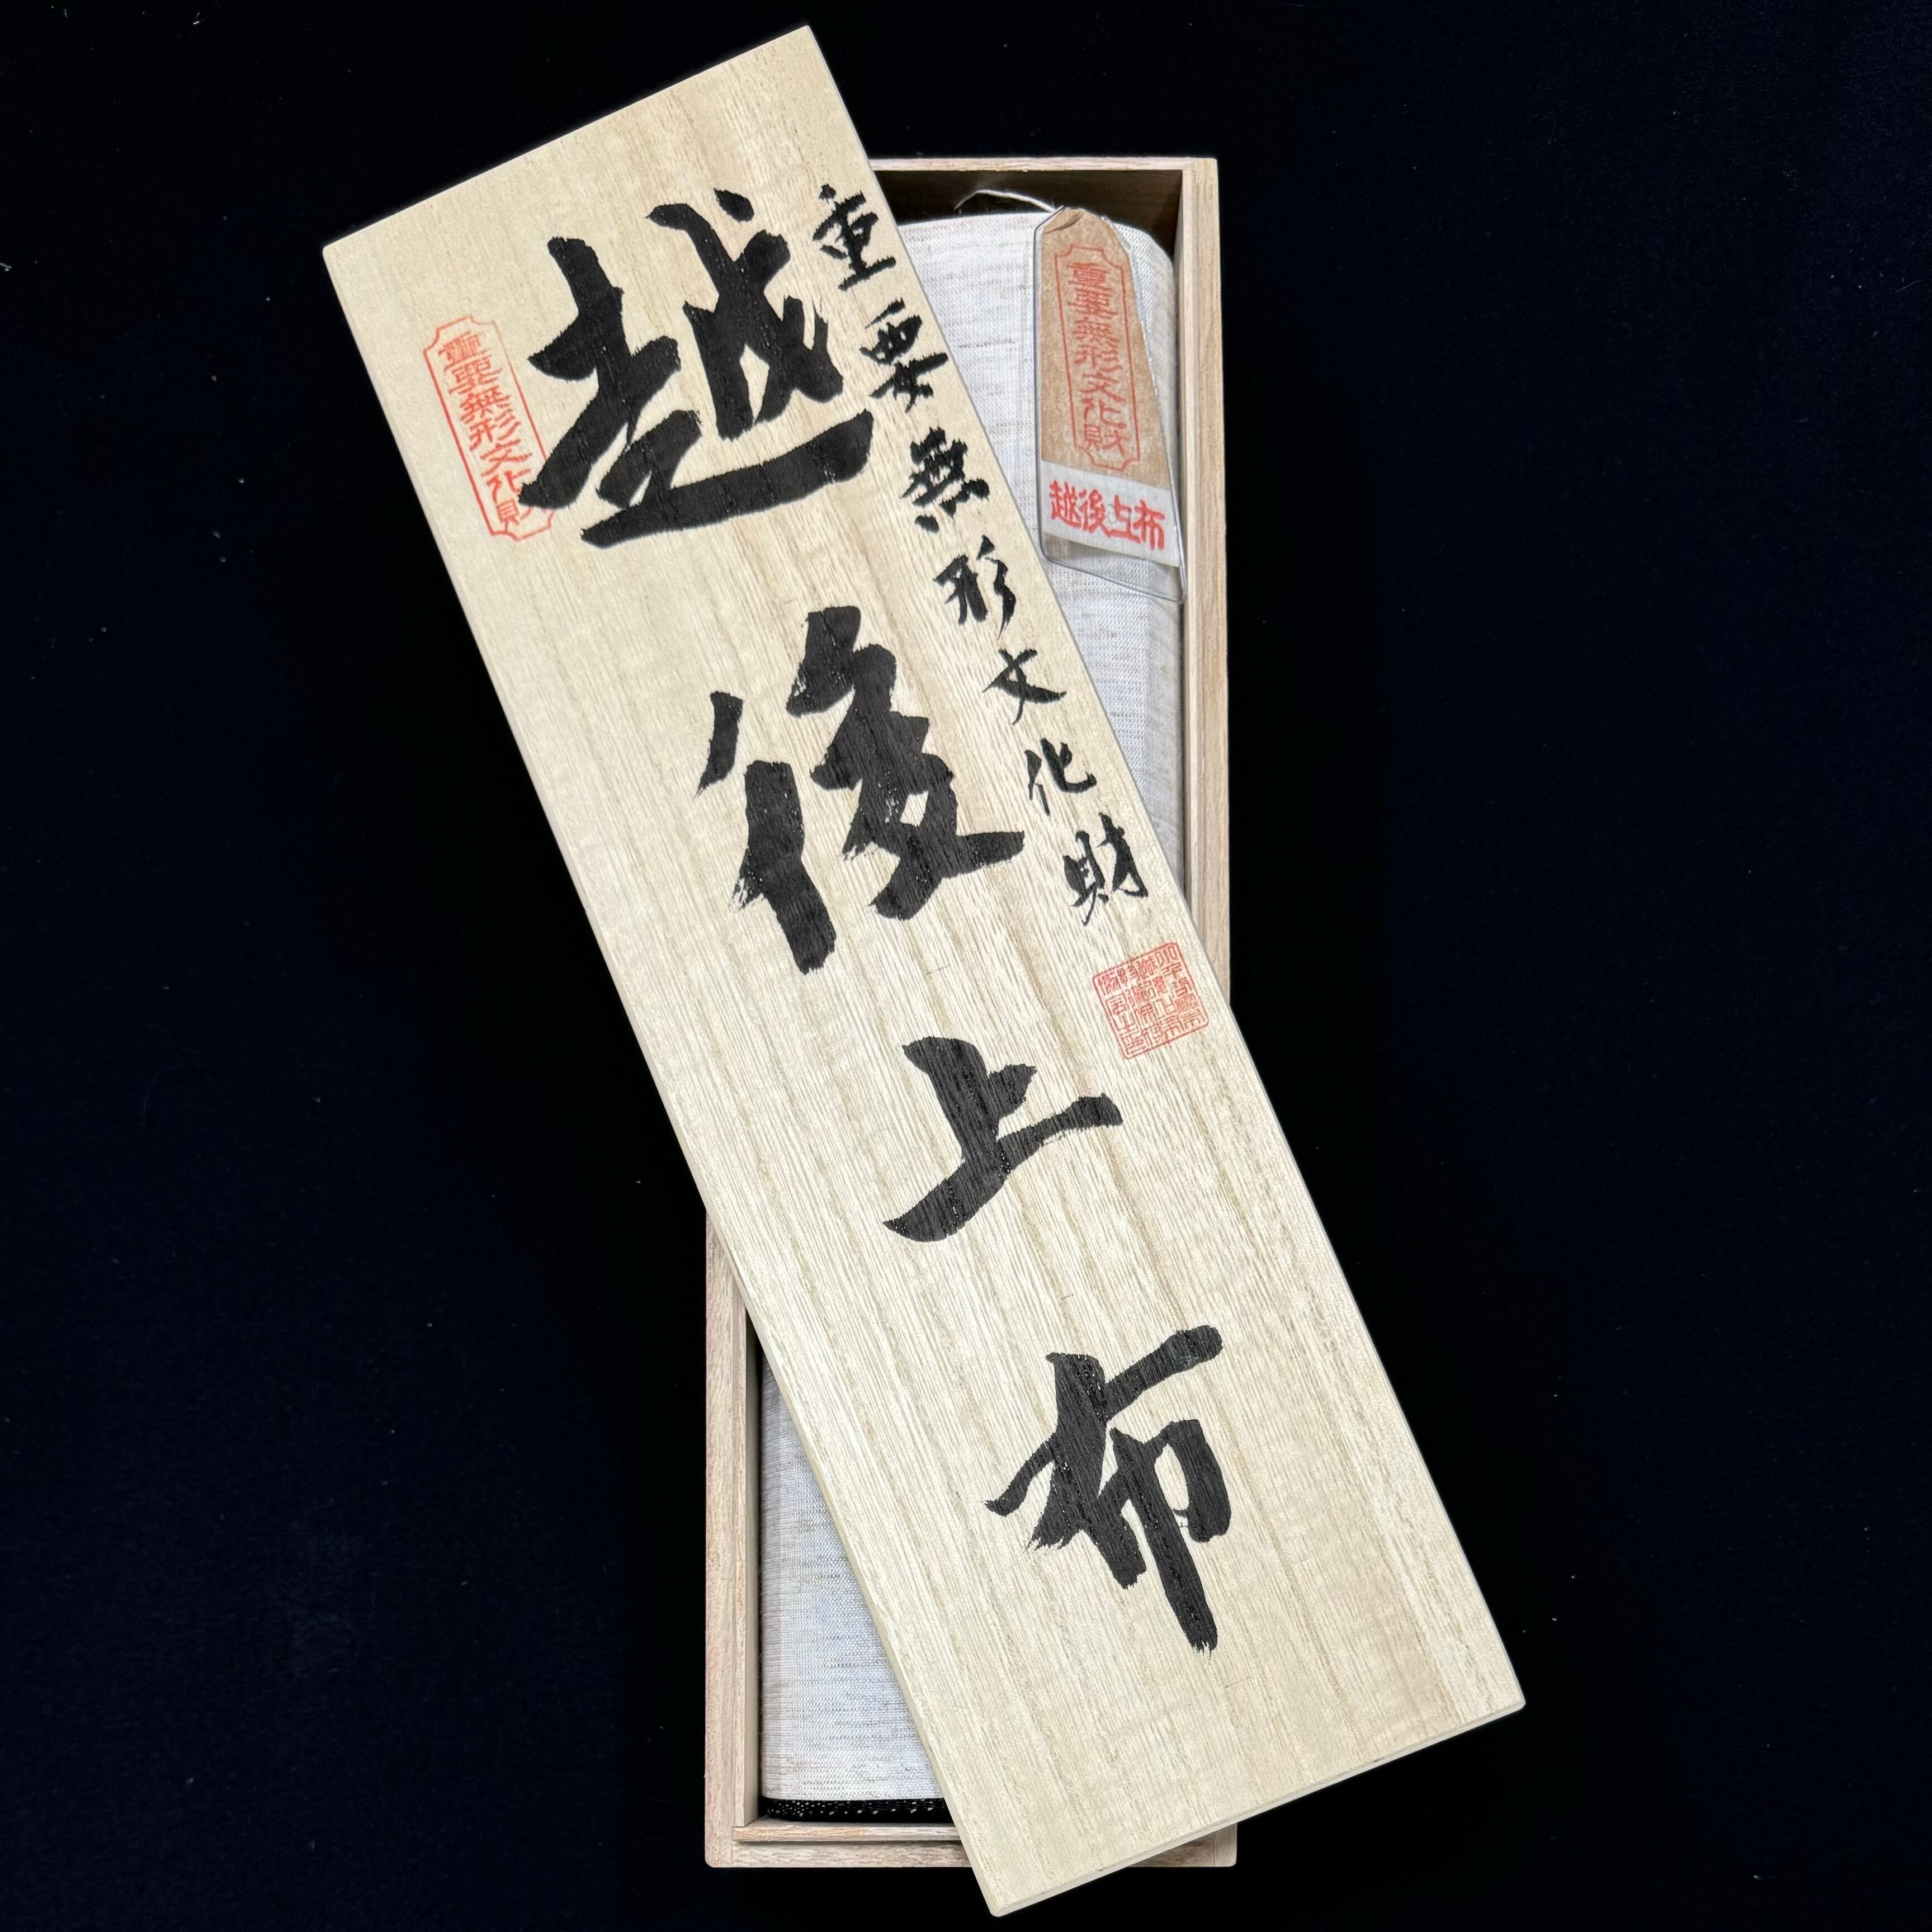 重要無形文化財
越後上布
重要無形文化財
重要無形文化財
越後上布